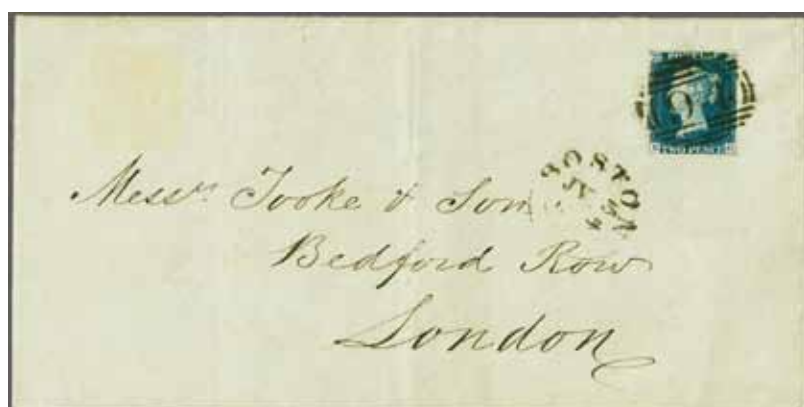 TWO PENCE
BOSTON
Mess.rs Tooke & Son
Bedford Row
London